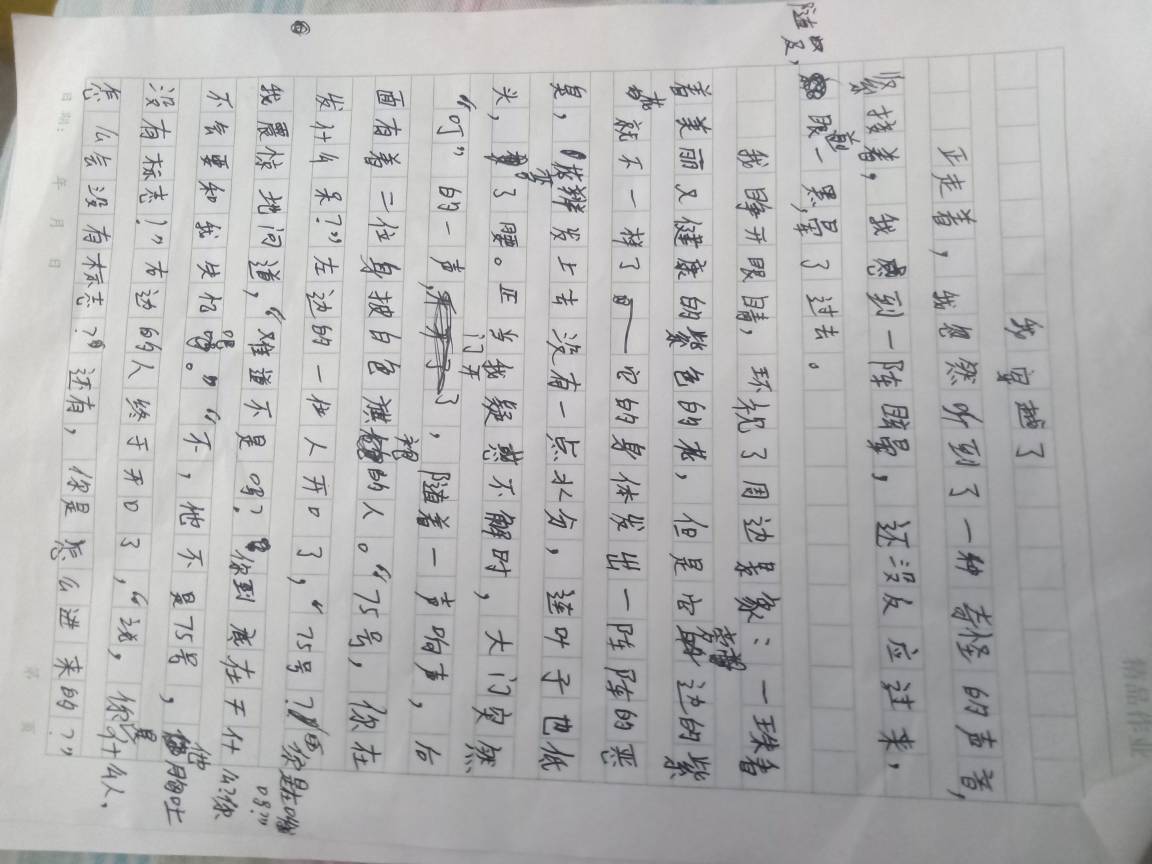 我穿越了
正走着，我忽然听到了一种奇怪的声音，
紧接着，我感到一阵眩晕，还没反应过来，
随即
眼前一黑，晕了过去。
我睁开眼睛，环视了周边景象：一珠看
着美丽又健康的紫色的花，但是它旁边的紫
花就不一样了——它的身体发出一阵阵的恶
臭，花瓣发上去没有一点水分，连叶子也低
头，了腰。正当我疑惑不解时，大门突然
“叮”的一声，门开了，随着一声响声，台
面有着二位身披白色的人。“75号，你在
发什么呆？”左边的一位人开口了，“75号？你是在
我震惊地问道，“难道不是吗？你到底在干什么？你
不会要和我失忆吧。”“不，他不是75号，他胸口上
没有标志！”右边的人终于开口了，“说，你是什么人，
怎么会没有标志？还有，你是怎么进来的？”
日期： 年 月 日
第 页
精品作业